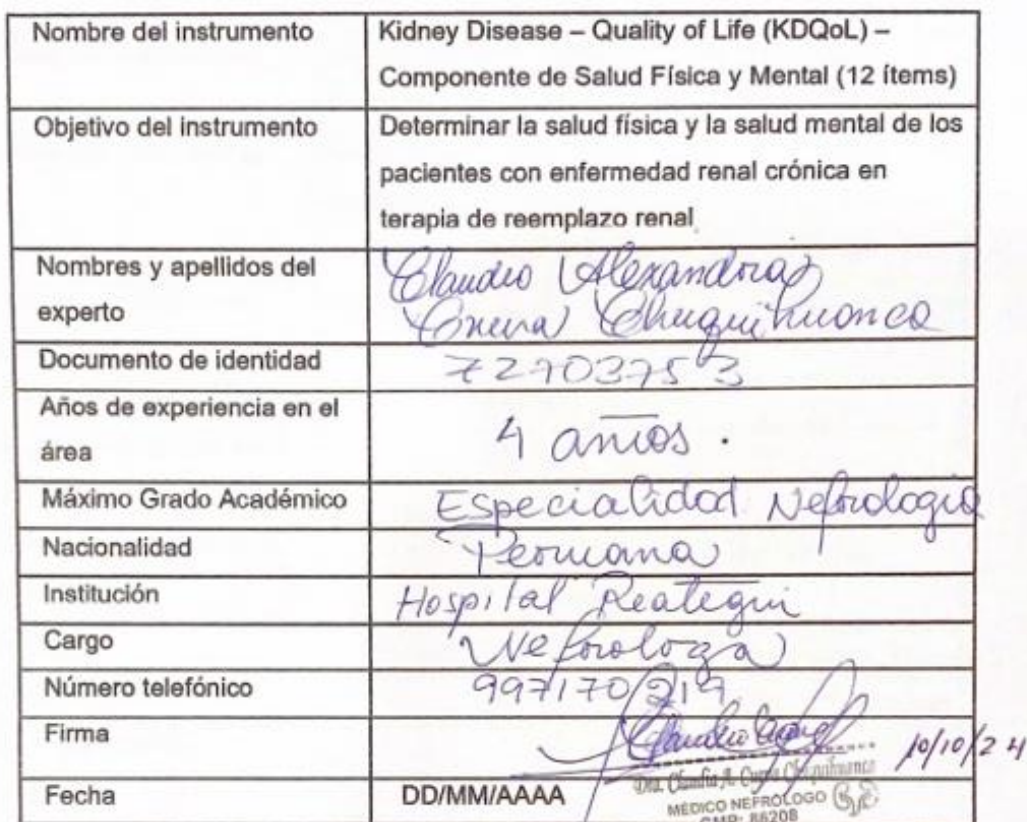 Nombre del instrumento
Kidney Disease – Quality of Life (KDQoL) –
Componente de Salud Física y Mental (12 ítems)
Objetivo del instrumento
Determinar la salud física y la salud mental de los
pacientes con enfermedad renal crónica en
terapia de reemplazo renal
Nombres y apellidos del
experto
Claudia Alexandra
Chuquihuanca
Documento de identidad
72703753
Años de experiencia en el
área
4 años.
Máximo Grado Académico
Especialidad Nefrología
Nacionalidad
Peruana
Institución
Hospital Reategui
Cargo
Nefrologa
Número telefónico
997170219
Firma
10/10/24
Dra. Claudia A.
MÉDICO NEFRÓLOGO
CMP: 86208
Fecha
DD/MM/AAAA